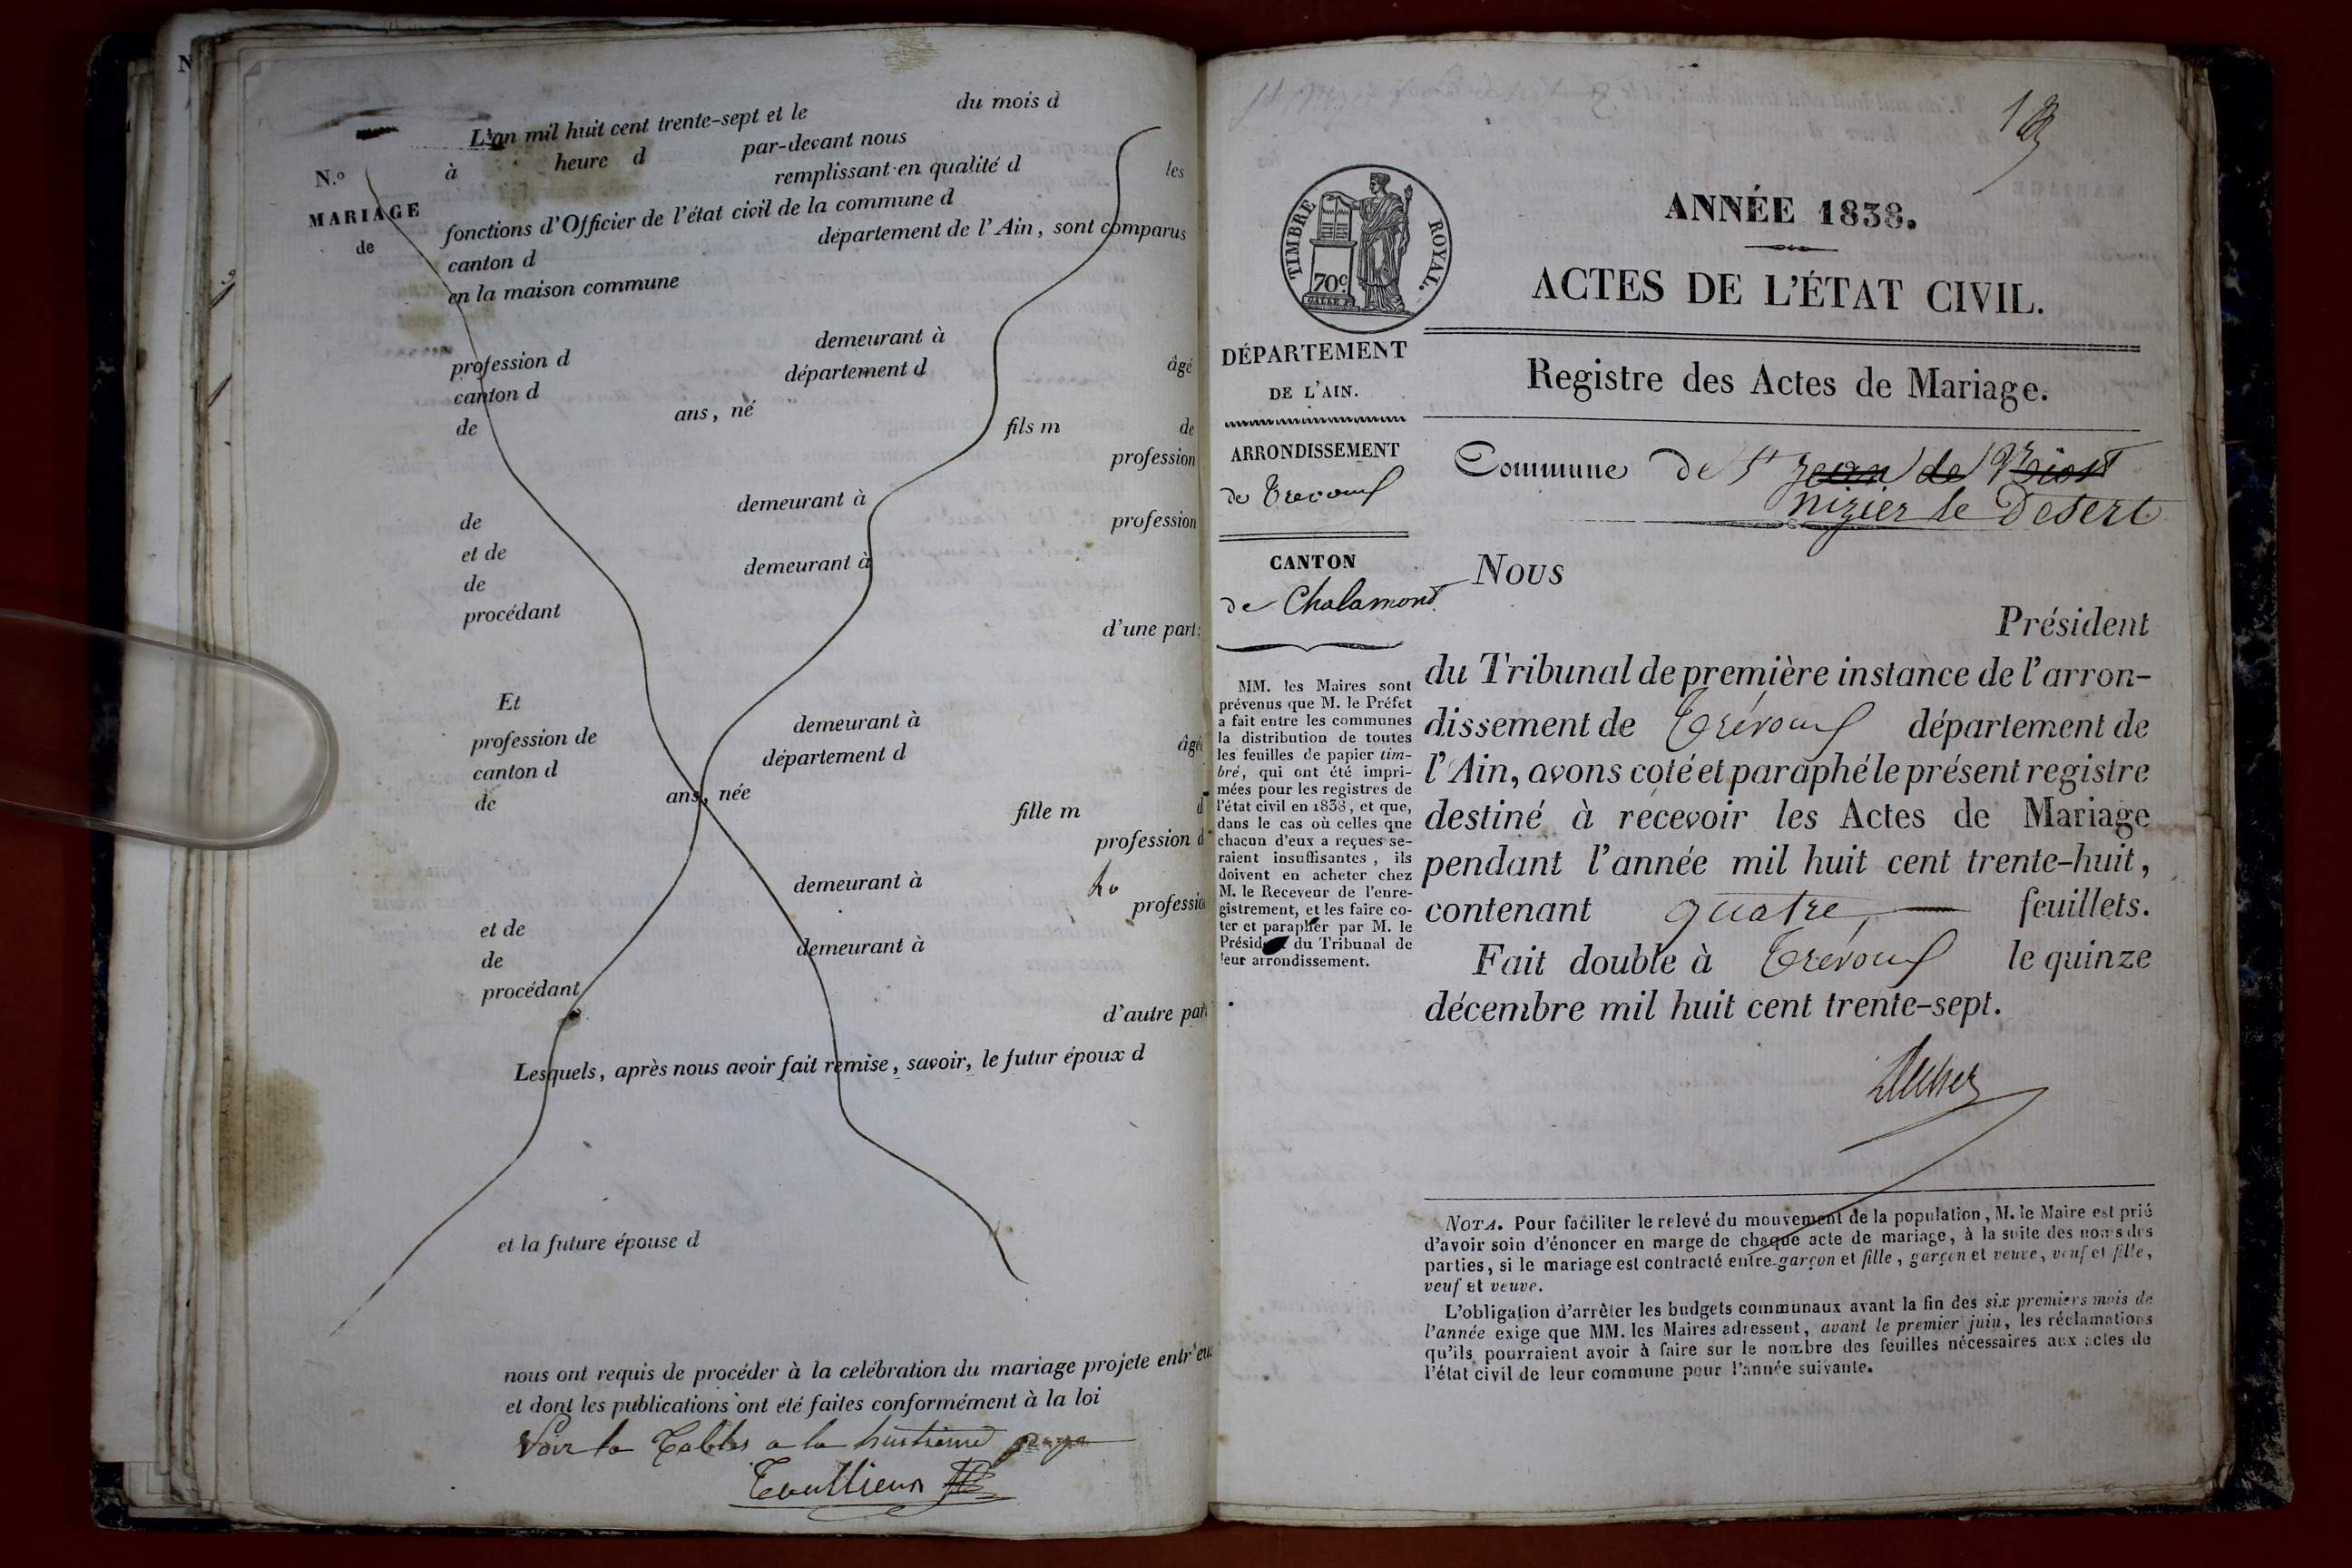 L'an mil huit cent trente-sept et le du mois d
à heure d par-devant nous
N.o remplissant en qualité d les
MARIAGE
de
fonctions d'Officier de l'état civil de la commune d
canton d département de l'Ain, sont comparus
en la maison commune
demeurant à
profession d département d âgé
canton d
de ans, né
fils m de
profession
demeurant à
de profession
et de
de demeurant à
procédant
d'une part;
Et
profession de demeurant à
canton d département d âgé
de ans, née
fille m d
profession d
demeurant à
profession
et de
de demeurant à
procédant
d'autre part
Lesquels, après nous avoir fait remise, savoir, le futur époux d
et la future épouse d
nous ont requis de procéder à la celébration du mariage projeté entr'eux
et dont les publications ont été faites conformément à la loi
Voir la Tables a la huitieme page
1
TIMBRE ROYAL.
70c
ANNÉE 1838.
ACTES DE L'ÉTAT CIVIL.
DÉPARTEMENT
DE L'AIN.
ARRONDISSEMENT
de Trevoux
CANTON
de Chalamont
MM. les Maires sont
prévenus que M. le Préfet
a fait entre les communes
la distribution de toutes
les feuilles de papier tim-
bré, qui ont été impri-
mées pour les registres de
l'état civil en 1838, et que,
dans le cas où celles que
chacun d'eux a reçues se-
raient insuffisantes, ils
doivent en acheter chez
M. le Receveur de l'enre-
gistrement, et les faire co-
ter et parapher par M. le
Président du Tribunal de
leur arrondissement.
Registre des Actes de Mariage.
Commune de St Jean de
nizier le Desert
Nous
Président
du Tribunal de première instance de l'arron-
dissement de Trévoux département de
l'Ain, avons coté et paraphé le présent registre
destiné à recevoir les Actes de Mariage
pendant l'année mil huit cent trente-huit,
contenant quatre feuillets.
Fait double à Trévoux le quinze
décembre mil huit cent trente-sept.
NOTA. Pour faciliter le relevé du mouvement de la population, M. le Maire est prié
d'avoir soin d'énoncer en marge de chaque acte de mariage, à la suite des noms des
parties, si le mariage est contracté entre garçon et fille, garçon et veuve, veuf et fille,
veuf et veuve.
L'obligation d'arrêter les budgets communaux avant la fin des six premiers mois de
l'année exige que MM. les Maires adressent, avant le premier juin, les réclamations
qu'ils pourraient avoir à faire sur le nombre des feuilles nécessaires aux actes de
l'état civil de leur commune pour l'année suivante.